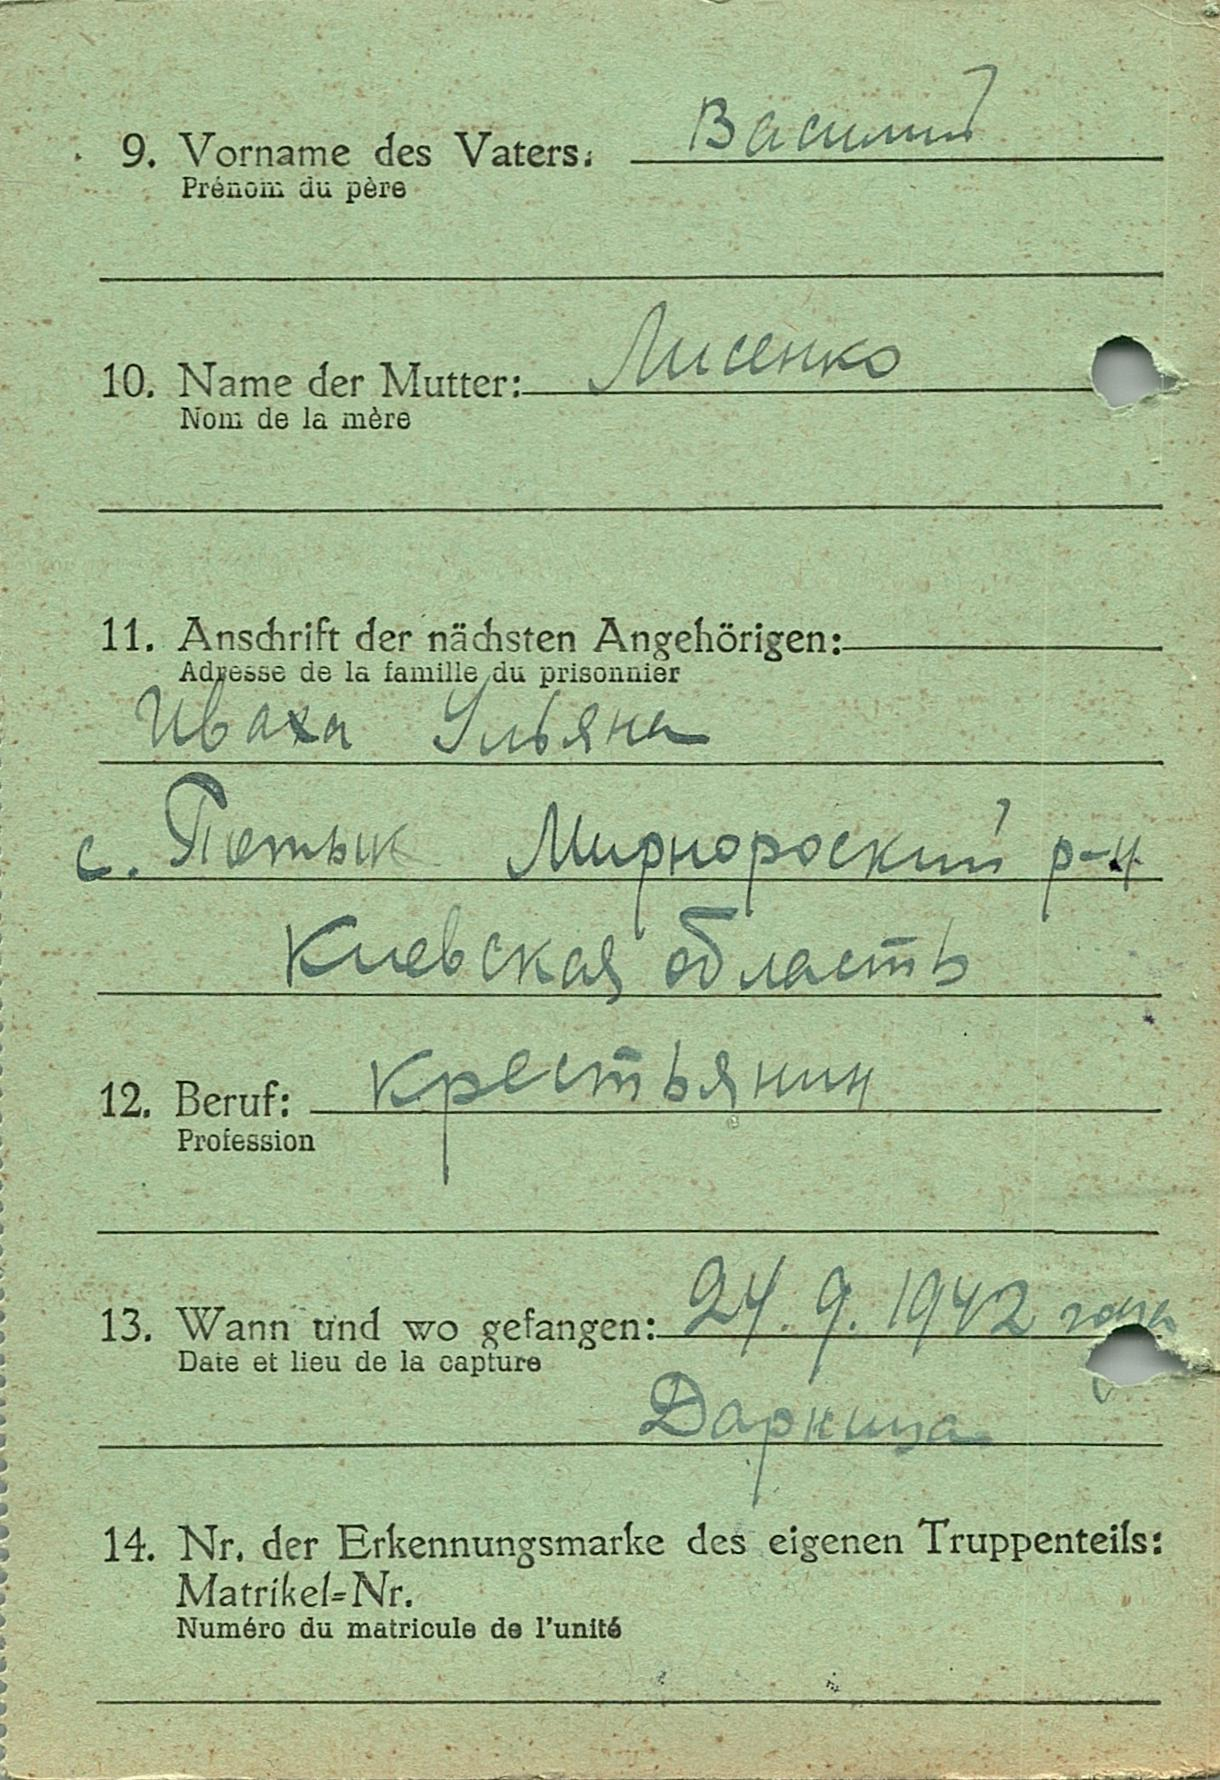 9. Vorname des Vaters: Василий
Prénom du père
10. Name der Mutter: Лисенко
Nom de la mère
11. Anschrift der nächsten Angehörigen:
Adresse de la famille du prisonnier
Иваха Ульяна
с. Мирнороский р-н
Киевская область
12. Beruf: крестьянин
Profession
13. Wann und wo gefangen: 24.9.1942 года
Date et lieu de la capture
Дарница
14. Nr. der Erkennungsmarke des eigenen Truppenteils:
Matrikel=Nr.
Numéro du matricule de l'unité